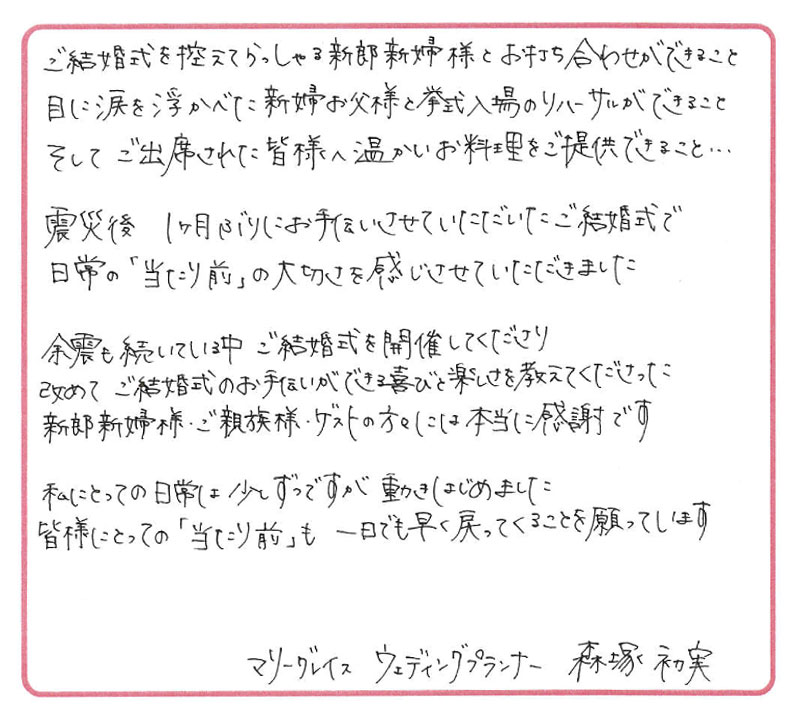 ご結婚式を控えてらっしゃる新郎新婦様とお打ち合わせができること
目に涙を浮かべた新婦お父様と挙式入場のリハーサルができること
そして ご出席された皆様へ温かいお料理をご提供できること…
震災後 1ヶ月ぶりにお手伝いさせていただいたご結婚式で
日常の「当たり前」の大切さを感じさせていただきました
余震も続いている中 ご結婚式を開催してくださり
改めて ご結婚式のお手伝いができる喜びと楽しさを教えてくださった
新郎新婦様・ご親族様・ゲストの方々には本当に感謝です
私にとっての日常は少しずつですが 動きはじめました
皆様にとっての「当たり前」も 一日でも早く戻ってくることを願っています
マリーグレイス ウェディングプランナー 森塚 初実